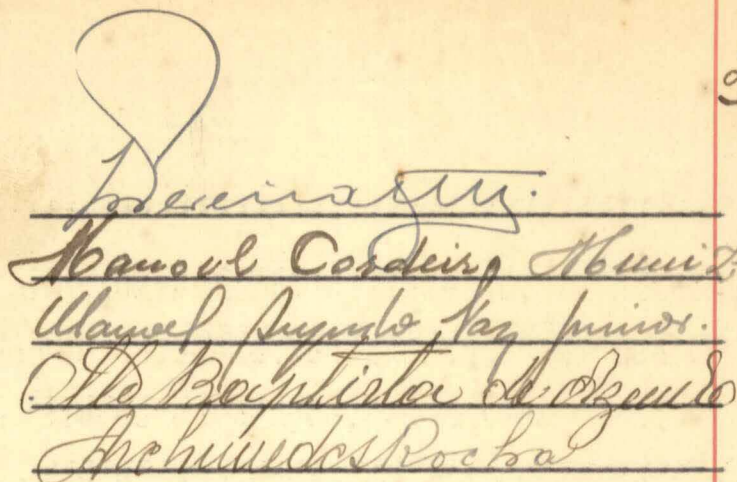 Manoel Cordeiro Muniz
Manoel Augusto Vaz Junior.
Baptista de Azevedo
Archimedes Rocha